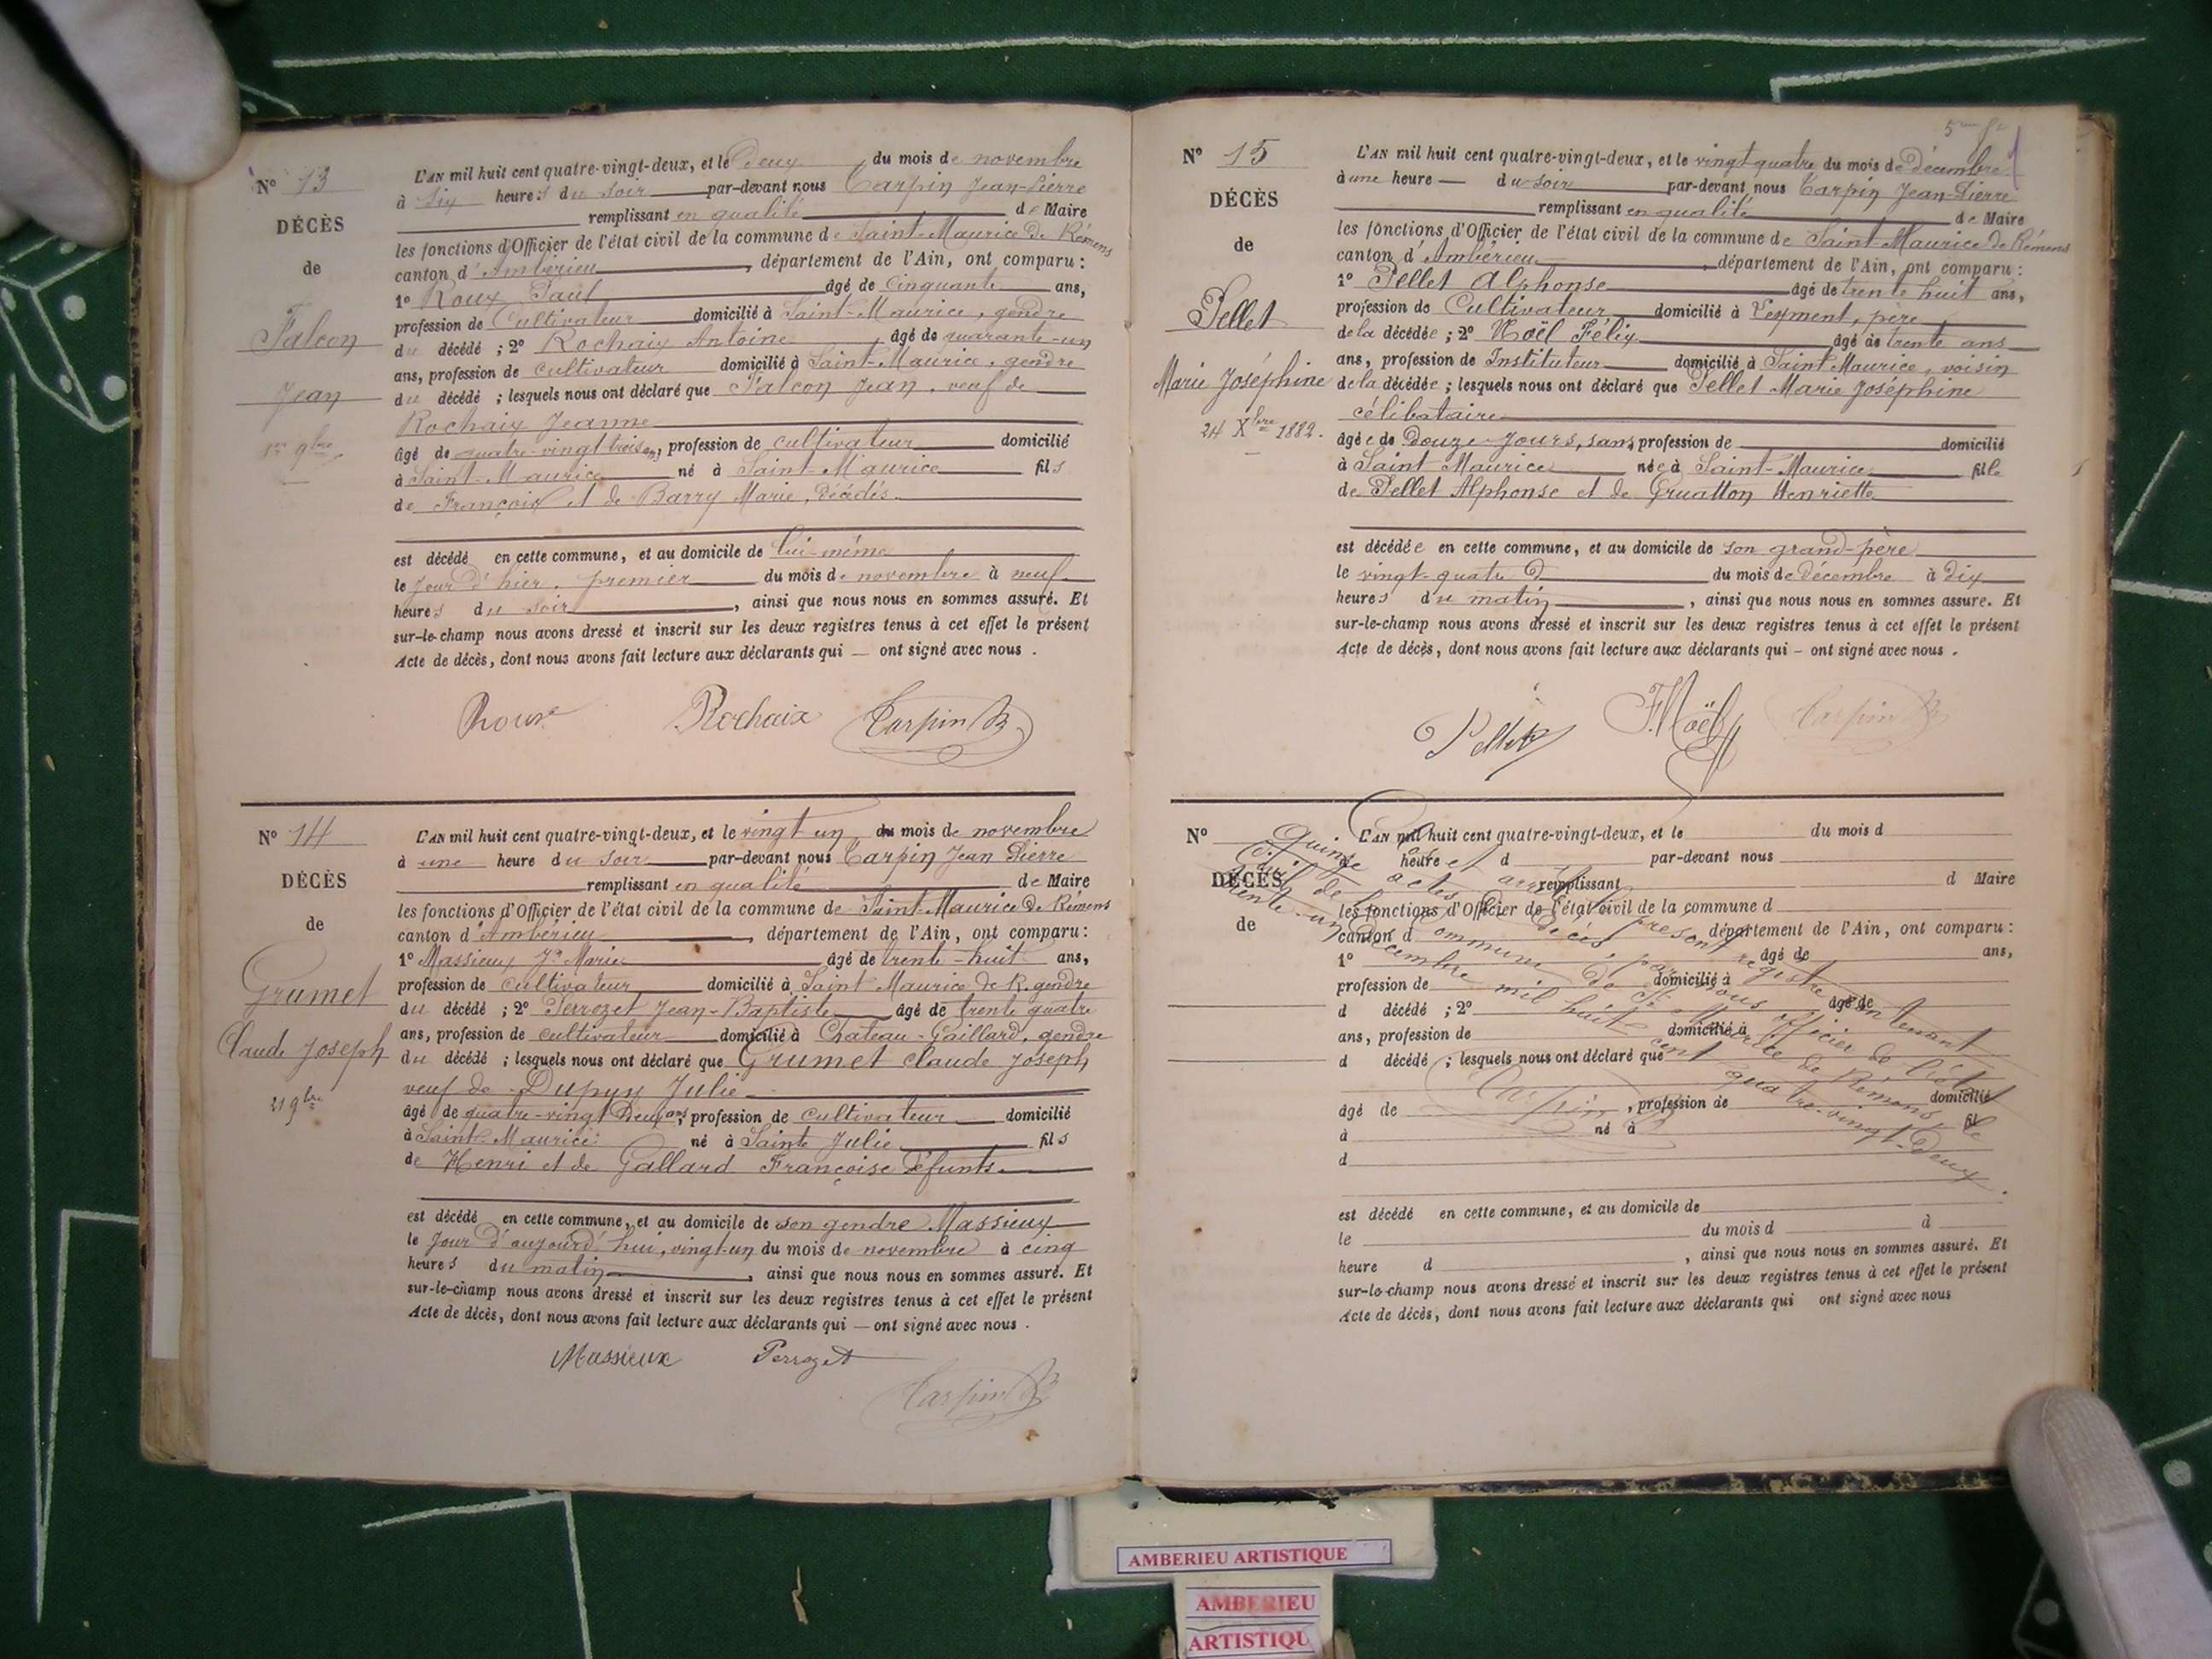 N° 13
DÉCÈS
de
Falcon
Jean
1er 9bre
L'AN mil huit cent quatre-vingt-deux, et le Deux du mois de novembre
à six heures du soir par-devant nous Carpin Jean-Pierre
remplissant en qualité de Maire
les fonctions d'Officier de l'état civil de la commune de Saint-Maurice de Rémens
canton d'Ambérieu, département de l'Ain, ont comparu :
1° Roux Paul âgé de cinquante ans,
profession de Cultivateur domicilié à Saint-Maurice, gendre
du décédé ; 2° Rochaix Antoine, âgé de quarante-un
ans, profession de cultivateur domicilié à Saint-Maurice, gendre
du décédé ; lesquels nous ont déclaré que Falcon Jean, veuf de
Rochaix Jeanne
âgé de quatre-vingt trois ans, profession de cultivateur domicilié
à Saint-Maurice né à Saint-Maurice fils
de François et de Barry Marie, Décédés
est décédé en cette commune, et au domicile de lui-même
le jour d'hier, premier du mois de novembre à neuf
heures du soir, ainsi que nous nous en sommes assuré. Et
sur-le-champ nous avons dressé et inscrit sur les deux registres tenus à cet effet le présent
Acte de décès, dont nous avons fait lecture aux déclarants qui — ont signé avec nous.
Roux Rochaix Carpin
N° 14
DÉCÈS
de
Grumet
Claude Joseph
21 9bre
L'AN mil huit cent quatre-vingt-deux, et le vingt un du mois de novembre
à une heure du soir par-devant nous Carpin Jean Pierre
remplissant en qualité de Maire
les fonctions d'Officier de l'état civil de la commune de Saint-Maurice de Rémens
canton d'Ambérieu, département de l'Ain, ont comparu :
1° Massieux Jn Marie âgé de trente-huit ans,
profession de cultivateur domicilié à Saint Maurice de R. gendre
du décédé ; 2° Perrozet Jean-Baptiste âgé de trente quatre
ans, profession de cultivateur domicilié à Chateau-Gaillard, gendre
du décédé ; lesquels nous ont déclaré que Grumet Claude Joseph
veuf de Dupuy Julie
âgé de quatre-vingt Deux ans, profession de cultivateur domicilié
à Saint-Maurice né à Sainte Julie fils
de Henri et de Gallard Françoise Défunts
est décédé en cette commune, et au domicile de son gendre Massieux
le Jour d'aujourd'hui, vingt-un du mois de novembre à cinq
heures du matin, ainsi que nous nous en sommes assuré. Et
sur-le-champ nous avons dressé et inscrit sur les deux registres tenus à cet effet le présent
Acte de décès, dont nous avons fait lecture aux déclarants qui — ont signé avec nous.
Massieux Perrozet
Carpin
N° 15
DÉCÈS
de
Pellet
Marie Joséphine
24 Xbre 1882.
L'AN mil huit cent quatre-vingt-deux, et le vingt quatre du mois de Décembre
à une heure — du soir par-devant nous Carpin Jean-Pierre
remplissant en qualité de Maire
les fonctions d'Officier de l'état civil de la commune de Saint-Maurice de Rémens
canton d'Ambérieu, département de l'Ain, ont comparu :
1° Pellet Alphonse âgé de trente huit ans,
profession de Cultivateur domicilié à Leyment, père
de la décédée ; 2° Noël Félix âgé de trente ans
ans, profession de Instituteur domicilié à Saint Maurice, voisin
de la décédée ; lesquels nous ont déclaré que Pellet Marie Joséphine
célibataire
âgée de Douze Jours, sans profession de domicilié
à Saint Maurice née à Saint-Maurice fille
de Pellet Alphonse et de Gruatton Henriette
est décédée en cette commune, et au domicile de son grand-père
le vingt-quatre D du mois de décembre à dix
heures du matin, ainsi que nous nous en sommes assuré. Et
sur-le-champ nous avons dressé et inscrit sur les deux registres tenus à cet effet le présent
Acte de décès, dont nous avons fait lecture aux déclarants qui — ont signé avec nous.
Pellet F. Noël Carpin
N°
DÉCÈS
de
L'AN mil huit cent quatre-vingt-deux, et le du mois d
à heure d par-devant nous
remplissant d Maire
les fonctions d'Officier de l'état civil de la commune d
canton d département de l'Ain, ont comparu :
1° âgé de ans,
profession de domicilié à
d décédé ; 2° âgé de
ans, profession de domicilié à
d décédé ; lesquels nous ont déclaré que
âgé de , profession de domicilié
à né à fil
d
est décédé en cette commune, et au domicile de
le du mois d à
heure d , ainsi que nous nous en sommes assuré. Et
sur-le-champ nous avons dressé et inscrit sur les deux registres tenus à cet effet le présent
Acte de décès, dont nous avons fait lecture aux déclarants qui ont signé avec nous
Clos et arrêté le présent registre contenant
Quinze actes de décès, par nous officier de l'état
civil de la Commune de St Maurice de Rémens, le
trente-un Décembre mil huit cent quatre-vingt-Deux.
Carpin
AMBERIEU ARTISTIQUE
AMBERIEU
ARTISTIQU